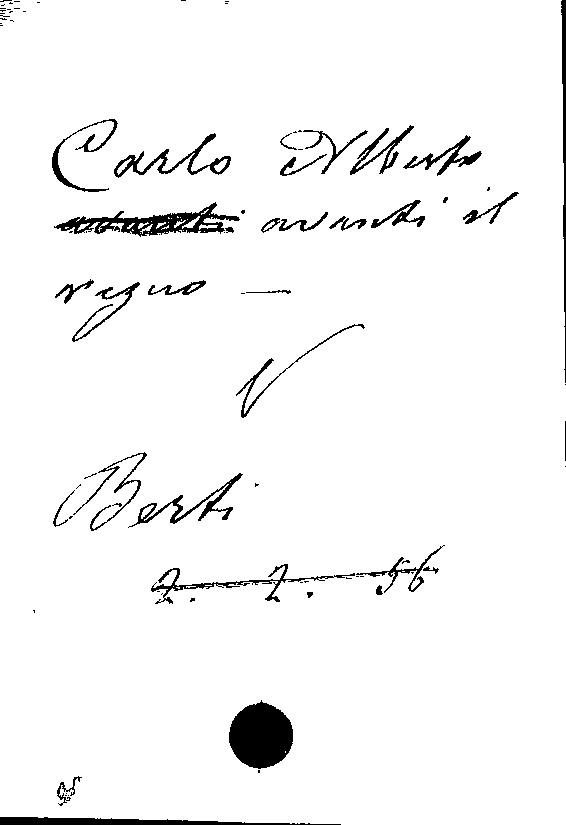 Carlo Alberto
avanti avanti il
regno —
V
Berti
2. 2. 56